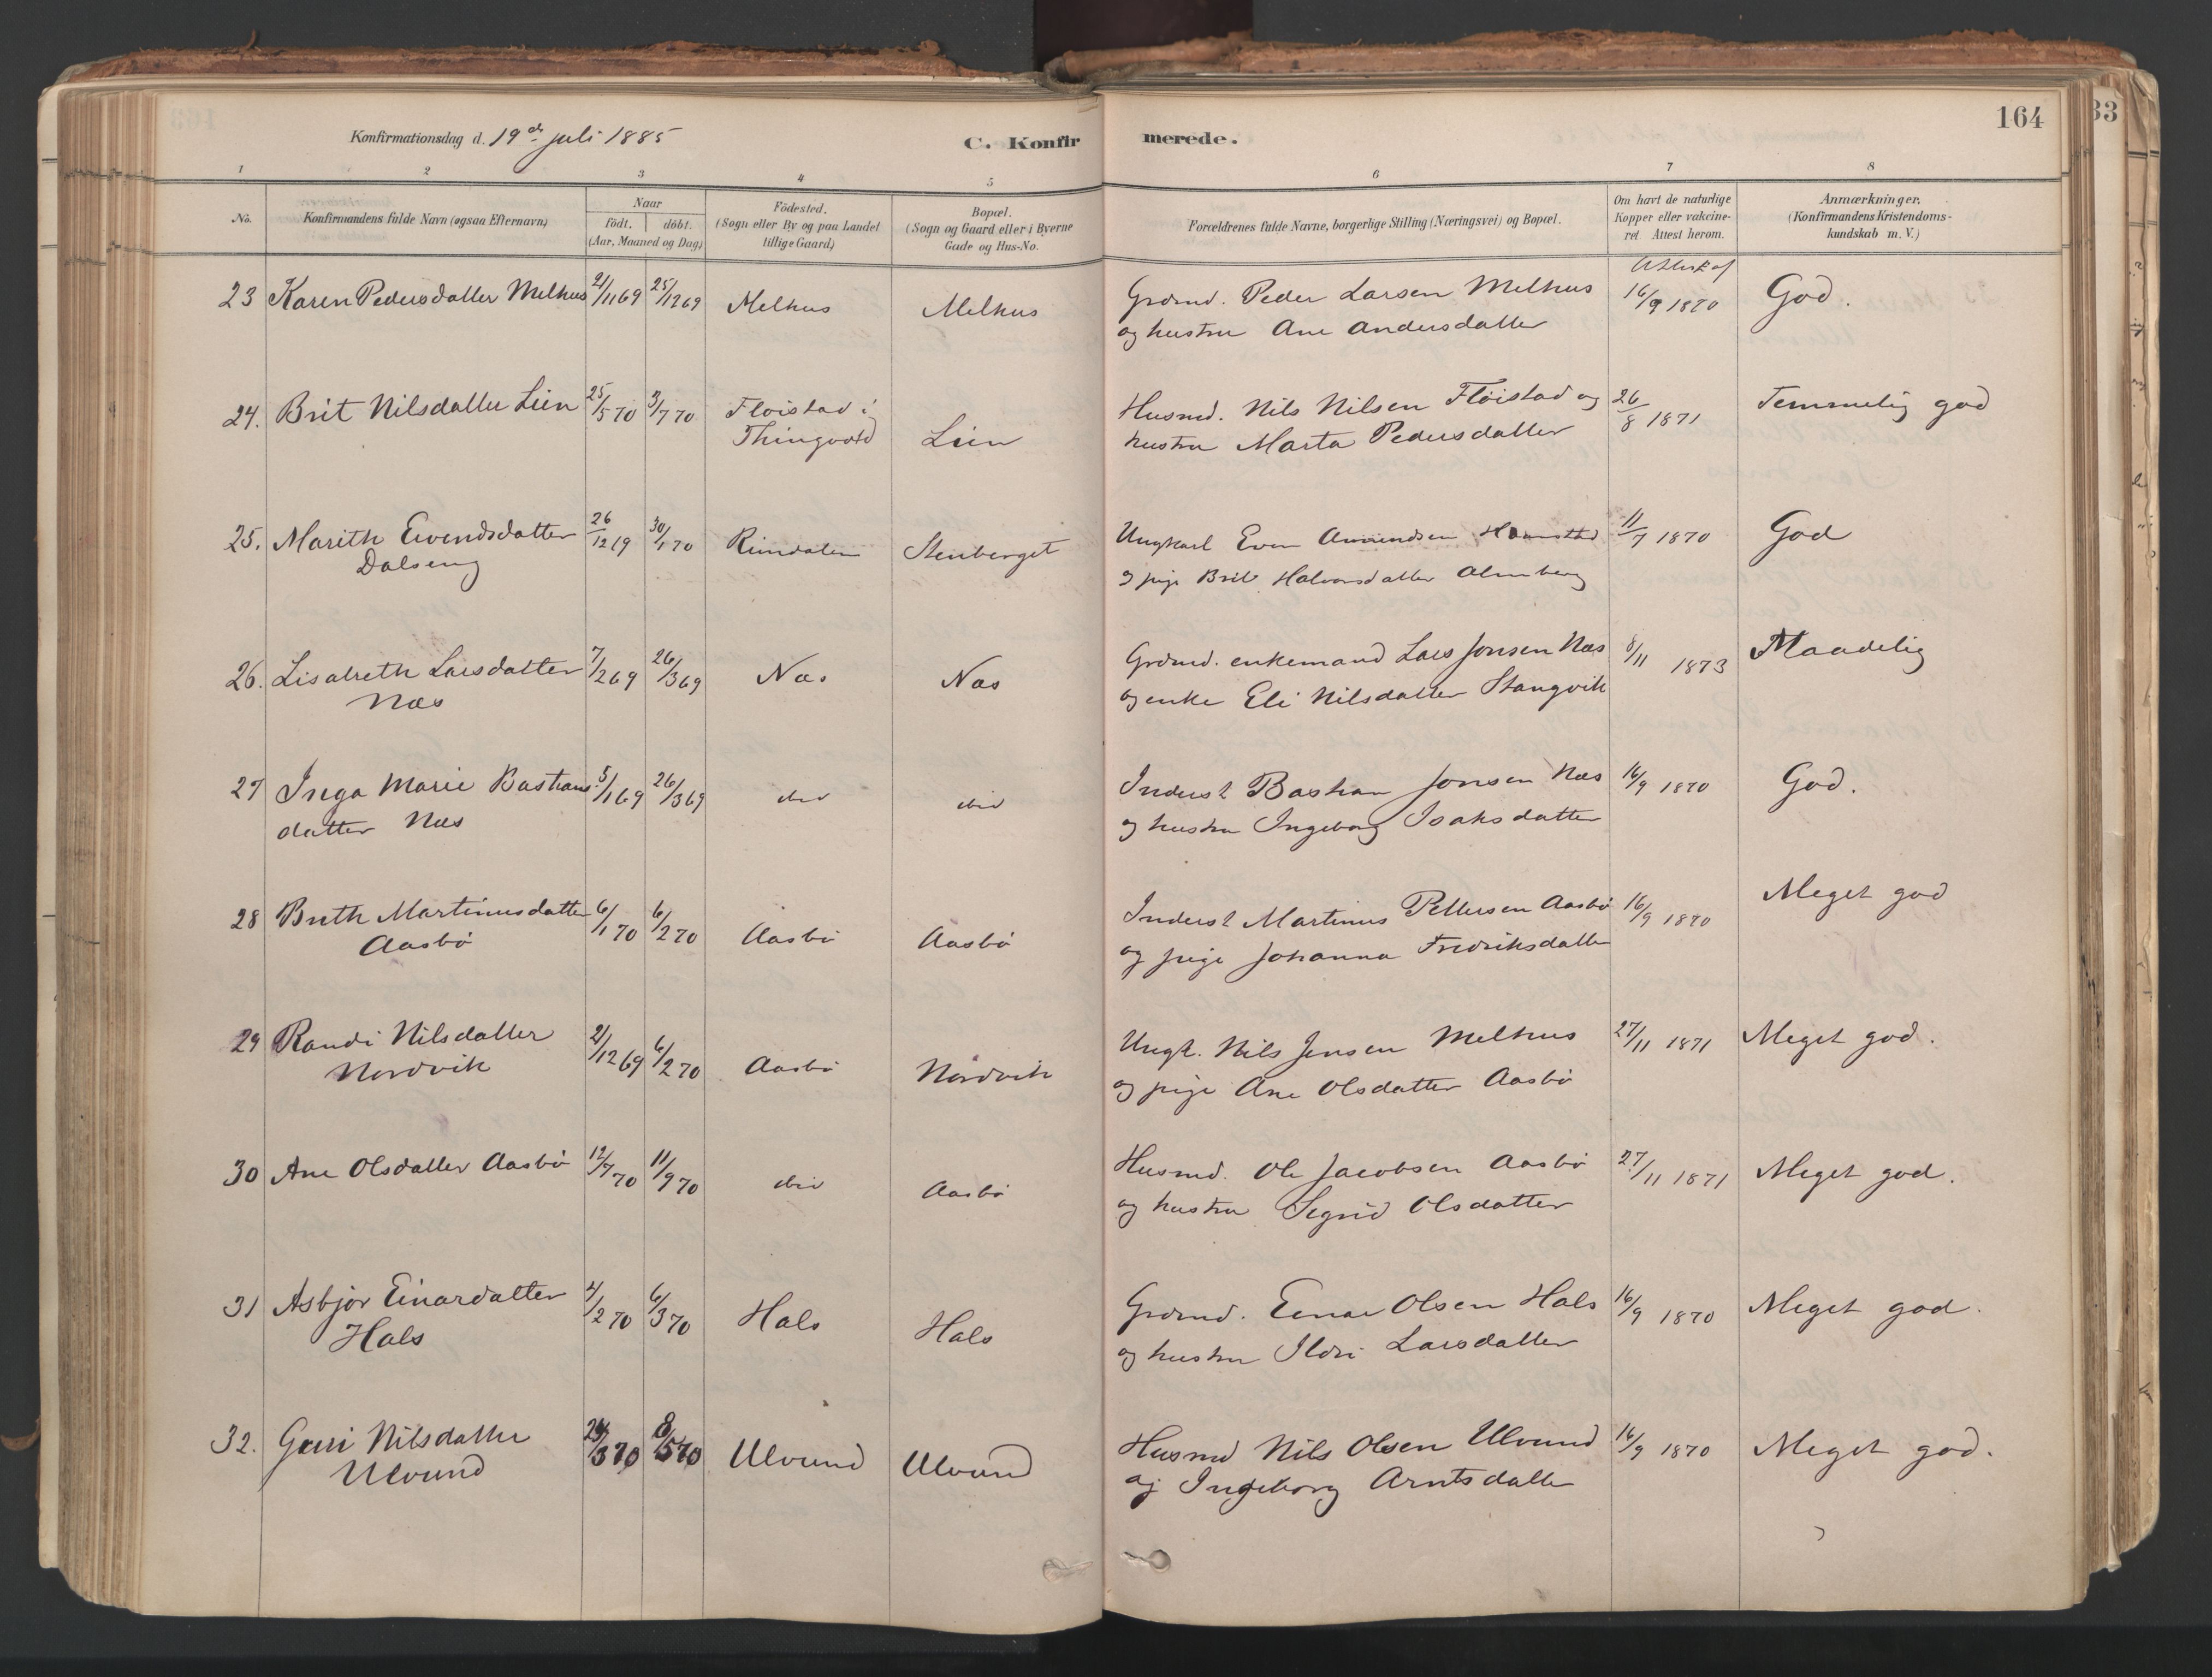 164
33
Konfirmationsdag d. 19de juli 1885
C. Konfirmerede.
1 2 3 4 5 6 7 8
No.
Konfirmandens fulde Navn (ogsaa Efternavn)
Naar
födt. döbt.
(Aar, Maaned og Dag)
Födested.
(Sogn eller By og paa Landet
tillige Gaard)
Bopæl.
(Sogn og Gaard eller i Byerne
Gade og Hus-No.
Forældrenes fulde Navne, borgerlige Stilling (Næringsvei) og Bopæl.
Om havt de naturlige
Kopper eller vakcine-
ret Attest herom.
Anmærkninger.
(Konfirmandens Kristendoms-
kundskab m. V.)
23 Karen Pedersdatter Melhus 21/11 69 25/12 69 Melhus Melhus Grdmd. Peder Larsen Melhus 16/9 1870 God.
og hustru Ane Andersdatter
24. Brit Nilsdatter Lien 25/5 70 3/7 70 Fløistad i Lien Husmd. Nils Nilsen Fløistad og 26/8 1871 Temmelig god
Thingvold
hustru Marta Pedersdatter
25. Marith Evendsdatter 26/12 69 30/1 70 Rindalen Stenberget Ungkarl Even Amundsen Hamstad 11/7 1870 God
Dalseng
og pige Brit Halvorsdatter Almberg
26. Lisabeth Larsdatter 7/2 69 26/3 69 Næs Næs Grdmd. enkemand Lars Jonsen Næs 8/11 1873 Maadelig
Næs
og enke Eli Nilsdatter Stangvik
27 Inga Marie Bastians- 5/1 69 26/3 69 ibid ibid Inderst Bastian Jonsen Næs 16/9 1870 God.
datter Næs
og hustru Ingeborg Isaksdatter
28 Brith Martinusdatter 6/1 70 6/2 70 Aasbø Aasbø Inderst Martinus Pettersen Aasbø 16/9 1870 Meget god
Aasbø
og pige Johanna Fredriksdatter
29 Randi Nilsdatter 21/12 69 6/2 70 Aasbø Nordvik Ungk. Nils Jensen Melhus 27/11 1871 Meget god.
Nordvik
og pige Ane Olsdatter Aasbø
30 Ane Olsdatter Aasbø 12/7 70 11/9 70 ibid Aasbø Husmd. Ole Jacobsen Aasbø 27/11 1871 Meget god.
og hustru Segrid Olsdatter
31 Asbjør Einardatter 4/2 70 6/3 70 Hals Hals Grdmd. Einar Olsen Hals 16/9 1870 Meget god.
Hals
og hustru Ildri Larsdatter
32. Guri Nilsdatter 24/3 70 8/5 70 Ulvund Ulvund Husmd Nils Olsen Ulvund 16/9 1870 Meget god.
Ulvund
og Ingeborg Arntsdatter